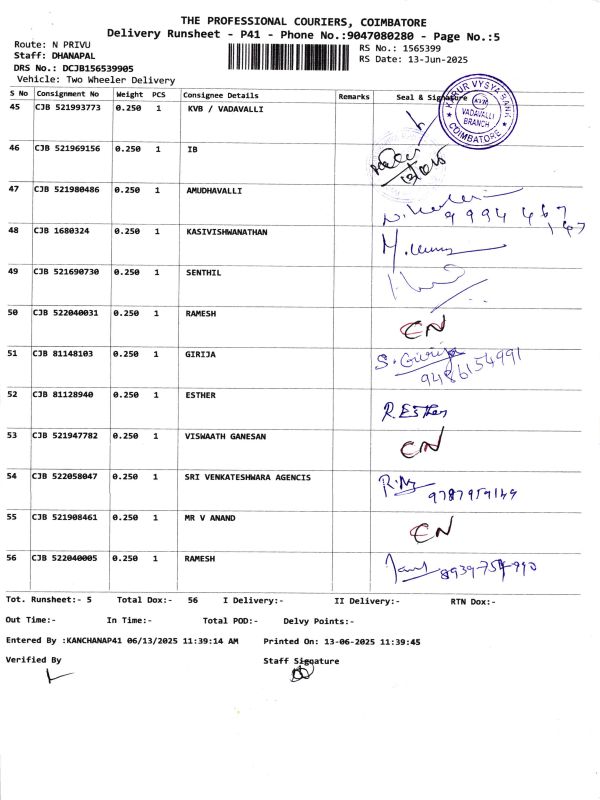 THE PROFESSIONAL COURIERS, COIMBATORE
Delivery Runsheet - P41 - Phone No.:9047080280 - Page No.:5
Route: N PRIVU
Staff: DHANAPAL
DRS No.: DCJB156539905
Vehicle: Two Wheeler Delivery
RS No.: 1565399
RS Date: 13-Jun-2025
S No Consignment No Weight PCS Consignee Details Remarks Seal & Signature
45 CJB 521993773 0.250 1 KVB / VADAVALLI
KARUR VYSYA BANK
VADAVALLI
BRANCH
COIMBATORE
46 CJB 521969156 0.250 1 IB
47 CJB 521980486 0.250 1 AMUDHAVALLI
9994 467
147
48 CJB 1680324 0.250 1 KASIVISHWANATHAN
49 CJB 521690730 0.250 1 SENTHIL
50 CJB 522040031 0.250 1 RAMESH CN
51 CJB 81148103 0.250 1 GIRIJA S. Girija
9486154991
52 CJB 81128940 0.250 1 ESTHER R. Esther
53 CJB 521947782 0.250 1 VISWAATH GANESAN CN
54 CJB 522058047 0.250 1 SRI VENKATESHWARA AGENCIS
55 CJB 521908461 0.250 1 MR V ANAND CN
56 CJB 522040005 0.250 1 RAMESH
Tot. Runsheet:- 5 Total Dox:- 56 I Delivery:- II Delivery:- RTN Dox:-
Out Time:- In Time:- Total POD:- Delvy Points:-
Entered By :KANCHANAP41 06/13/2025 11:39:14 AM Printed On: 13-06-2025 11:39:45
Verified By Staff Signature